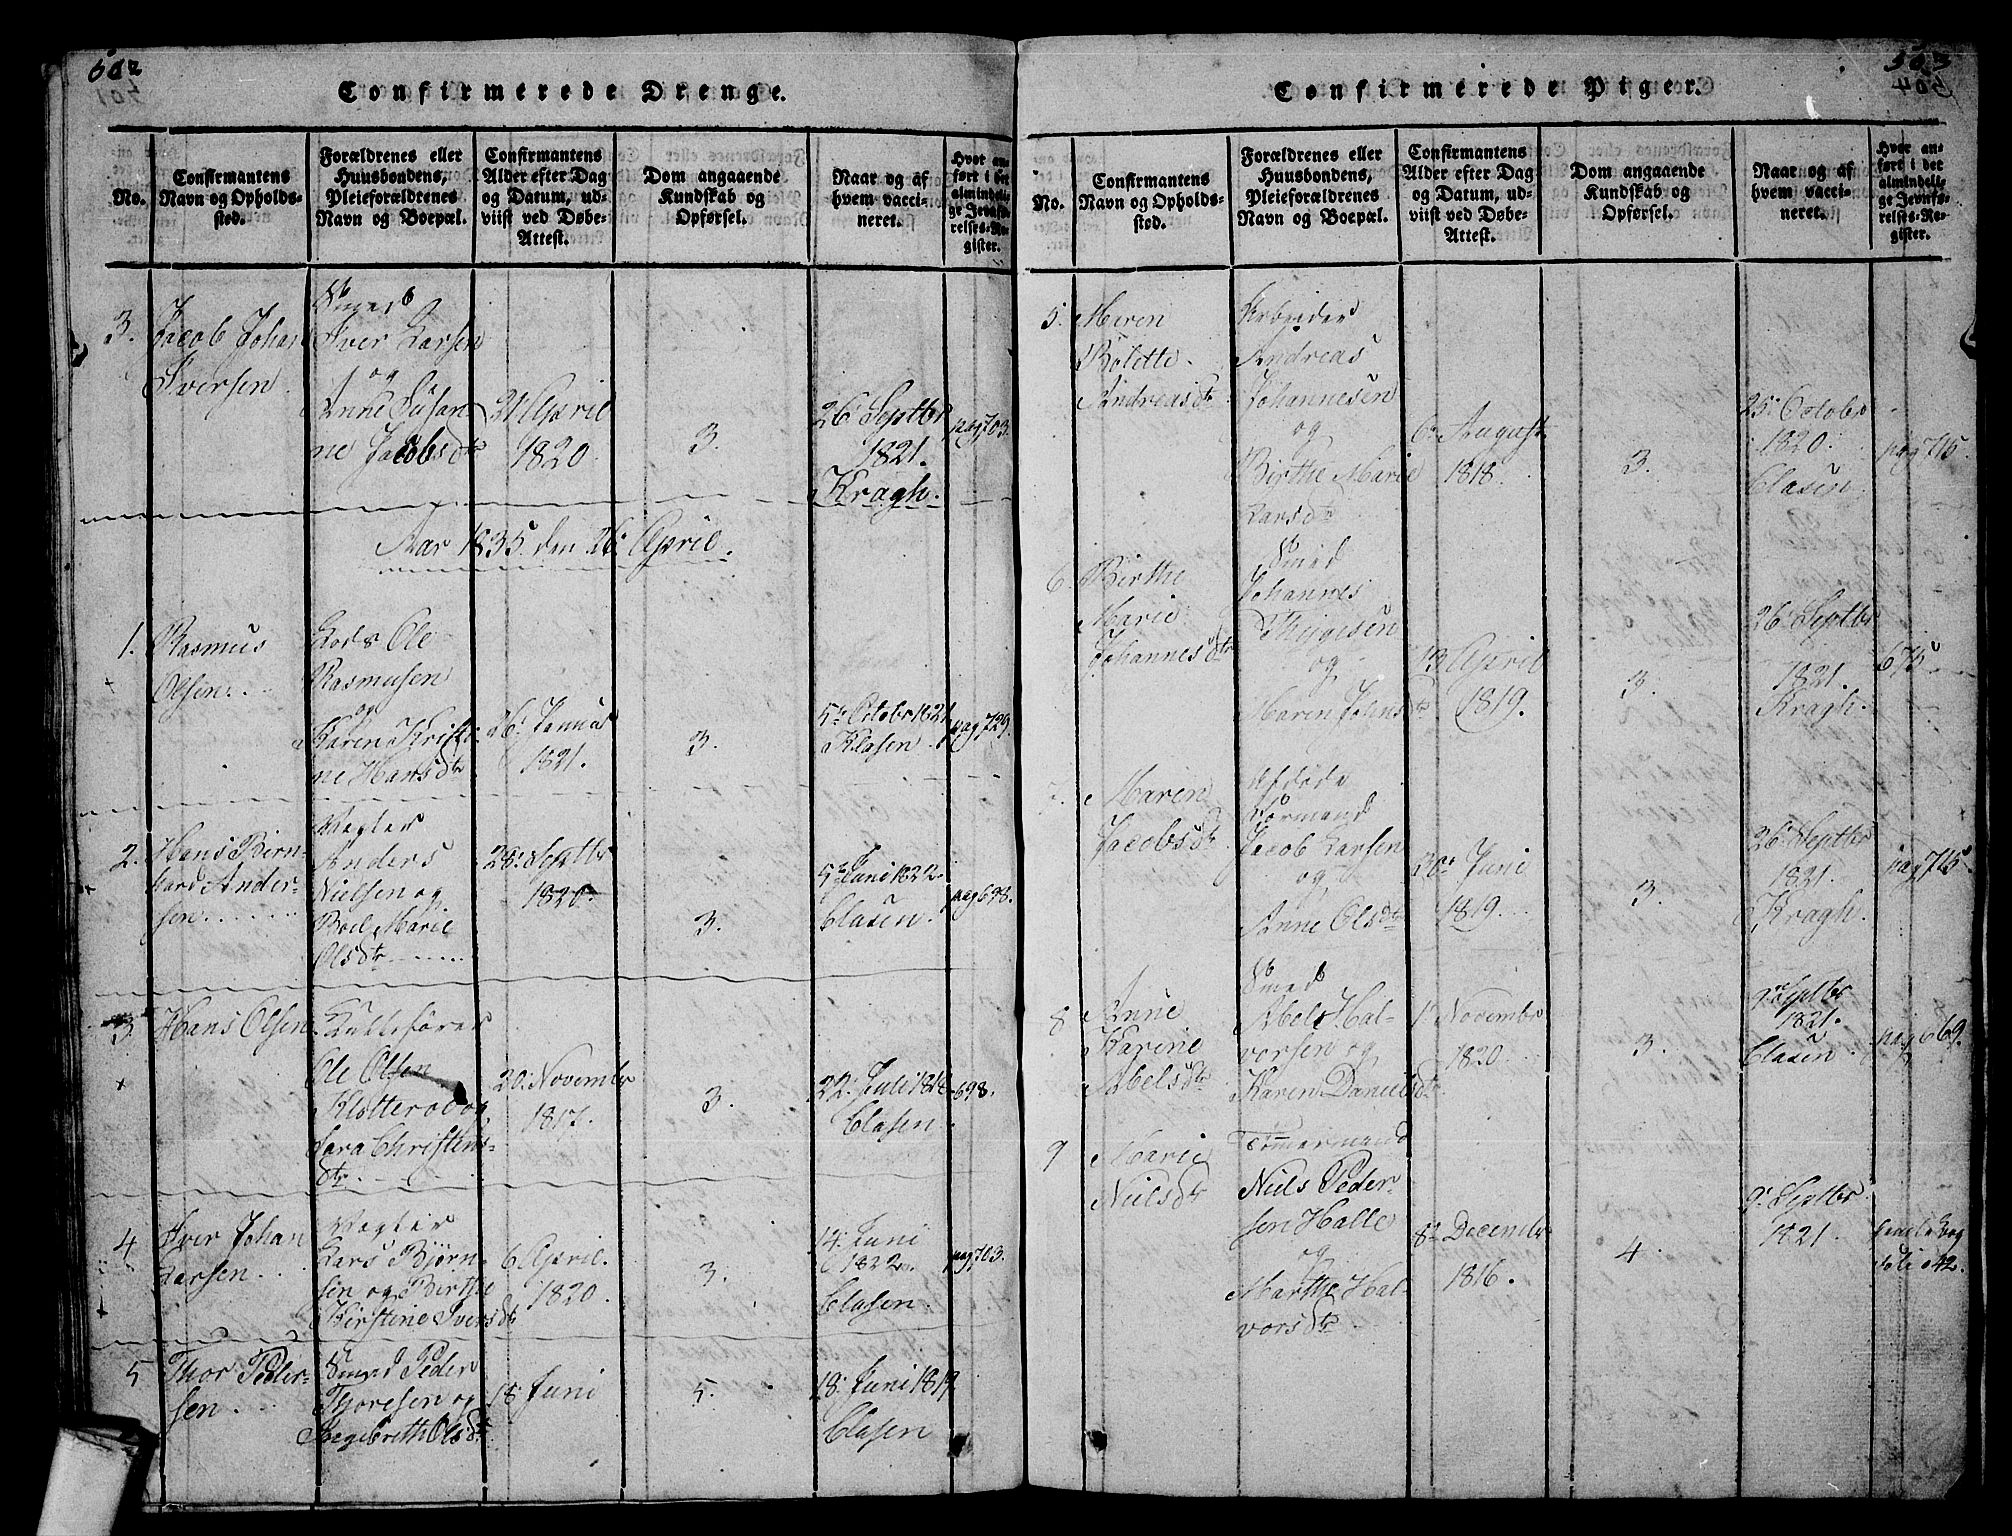 502
Confirmerede Drenge.
No.
Confirmantens
Navn og Opholds-
sted.
Forældrenes eller
Huusbondens,
Pleieforældrenes
Navn og Boepæl.
Confirmantens
Alder efter Dag
og Datum, ud-
viist ved Døbe-
Attest.
Dom angaaende
Kundskab og
Opførsel.
Naar og af
hvem vacci-
neret.
Hvor an-
ført i det
almindeli-
ge Jevnfø-
relses-Re-
gister.
3.
Jacob Johan
Iversen
Smed
Iver Larsen
og
Anne Susan
ne Jacobsdtr
21 April
1820
3.
26 Septbr
1821.
Kragh.
pag 703.
Aar 1835 den 26 April.
1.
Rasmus
Olsen
Lods Ole
Rasmusen
og
Karen Kristi-
ne Hansdtr
26. Januar
1821.
3.
5te Octobr 1821
Klasen
pag 729.
2.
Hans Birn-
hard Ander-
sen
Vegter
Anders
Nielsen og
Boel Marie
Olsdtr
28 Septbr
1820
3.
5te Juni 1822
Clasen.
pag 698.
3
Hans Olsen
Kullefører
Ole Olsen
Klotterød og
Sara Christens-
dtr
20. Novembr
1817.
3.
22 Juli 1818
Clasen
698.
4
Iver Johan
Larsen
Vegter
Lars Bjørn-
sen og Berthe
Kirstine Iversdtr
6 April.
1820
3.
14. Juni
1822
Clasen
pag 703.
5
Thor Peder-
sen
Smed Peder
Thoresen og
Ingebreth Olsdtr
18 Juni
5.
18. Juni 1819
Clasen
503
504
Confirmerede Piger.
No.
Confirmantens
Navn og Opholds-
sted.
Forældrenes eller
Huusbondens,
Pleieforældrenes
Navn og Boepæl.
Confirmantens
Alder efter Dag
og Datum, ud-
viist ved Døbe-
Attest.
Dom angaaende
Kundskab og
Opførsel.
Naar og af
hvem vacci-
neret.
Hvor an-
ført i det
almindeli-
ge Jevnfø-
relses-Re-
gister.
5.
Maren
Bolette
Andreasdtr
Arbeider
Andreas
Johannesen
og
Birthe Marie
Larsdtr
6te August
1818
3.
25 Octobr
1820.
Clasen
pag 715.
6
Birthe
Marie
Johannesdtr
Smed
Johannes
Thygesen
og
Maren Johnsdtr
13 April
1819.
3.
26 Septbr
1821.
Kragh.
675
7.
Maren
Jacobsdtr
Afdøde
Formand
Jacob Larsen
og
Anne Olsdtr
30te Juni
1819
3.
26 Septbr
1821.
Kragh.
pag 715
8
Anne
Karine
Abelsdtr
Smed
Abel Hal-
vorsen og
Karen Danielsdtr
1 Novembr
1820
3.
9 Septbr
1821.
Clasen
pag 669.
9
Marie
Nielsdtr
Tømmermand
Niels Peder-
sen Halle
og
Marthe Hal-
vorsdtr
8de Decembr
1816.
4.
9. Septbr
1821
gamle bog
folio 42.